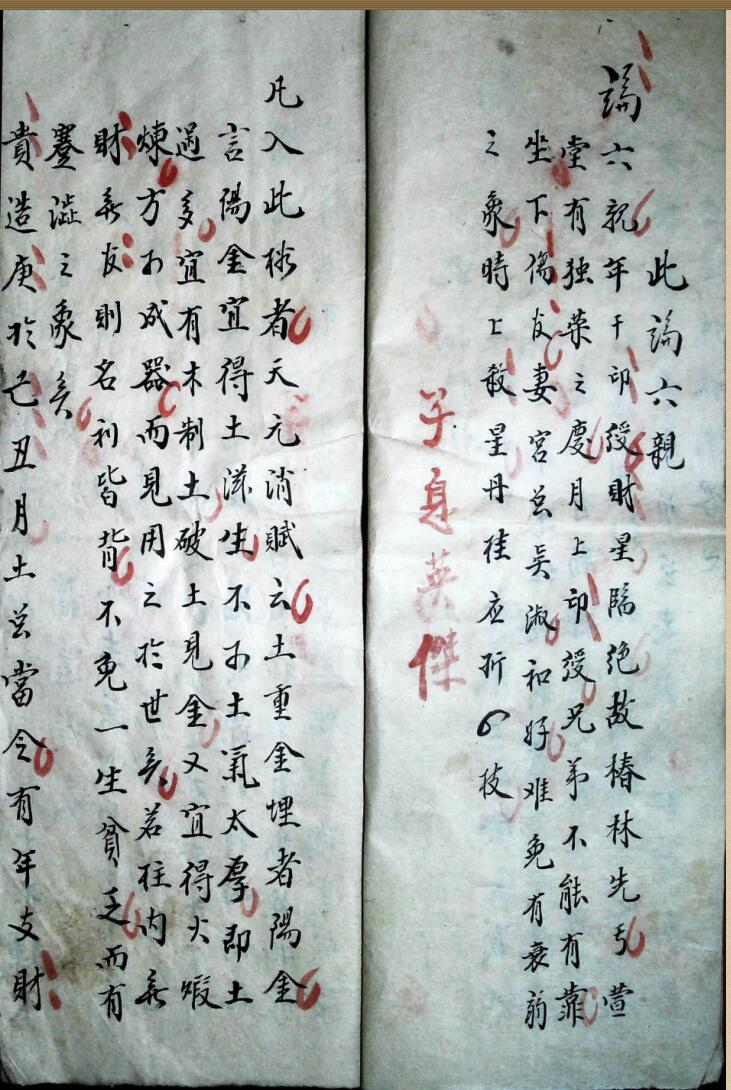 此論六親
論六親年干印绶財星臨绝故椿林先亏萱
堂有独荣之慶月上印绶兄弟不能有靠
坐下傷官妻宮总吴淑和好难免有衰
之象時上殺星丹桂应折6枝
孑身英傑
凡入此格者天元消賦云土重金埋者陽金
言陽金宜得土滋生不可土氣太厚即土
過多宜有木制土破土見金又宜得火煅
煉方可成器而見用之於世矣若柱内無
財無官則名利皆背不免一生貧乏而有
蹇澁之象矣
貴造庚於己丑月土总當令有年支財